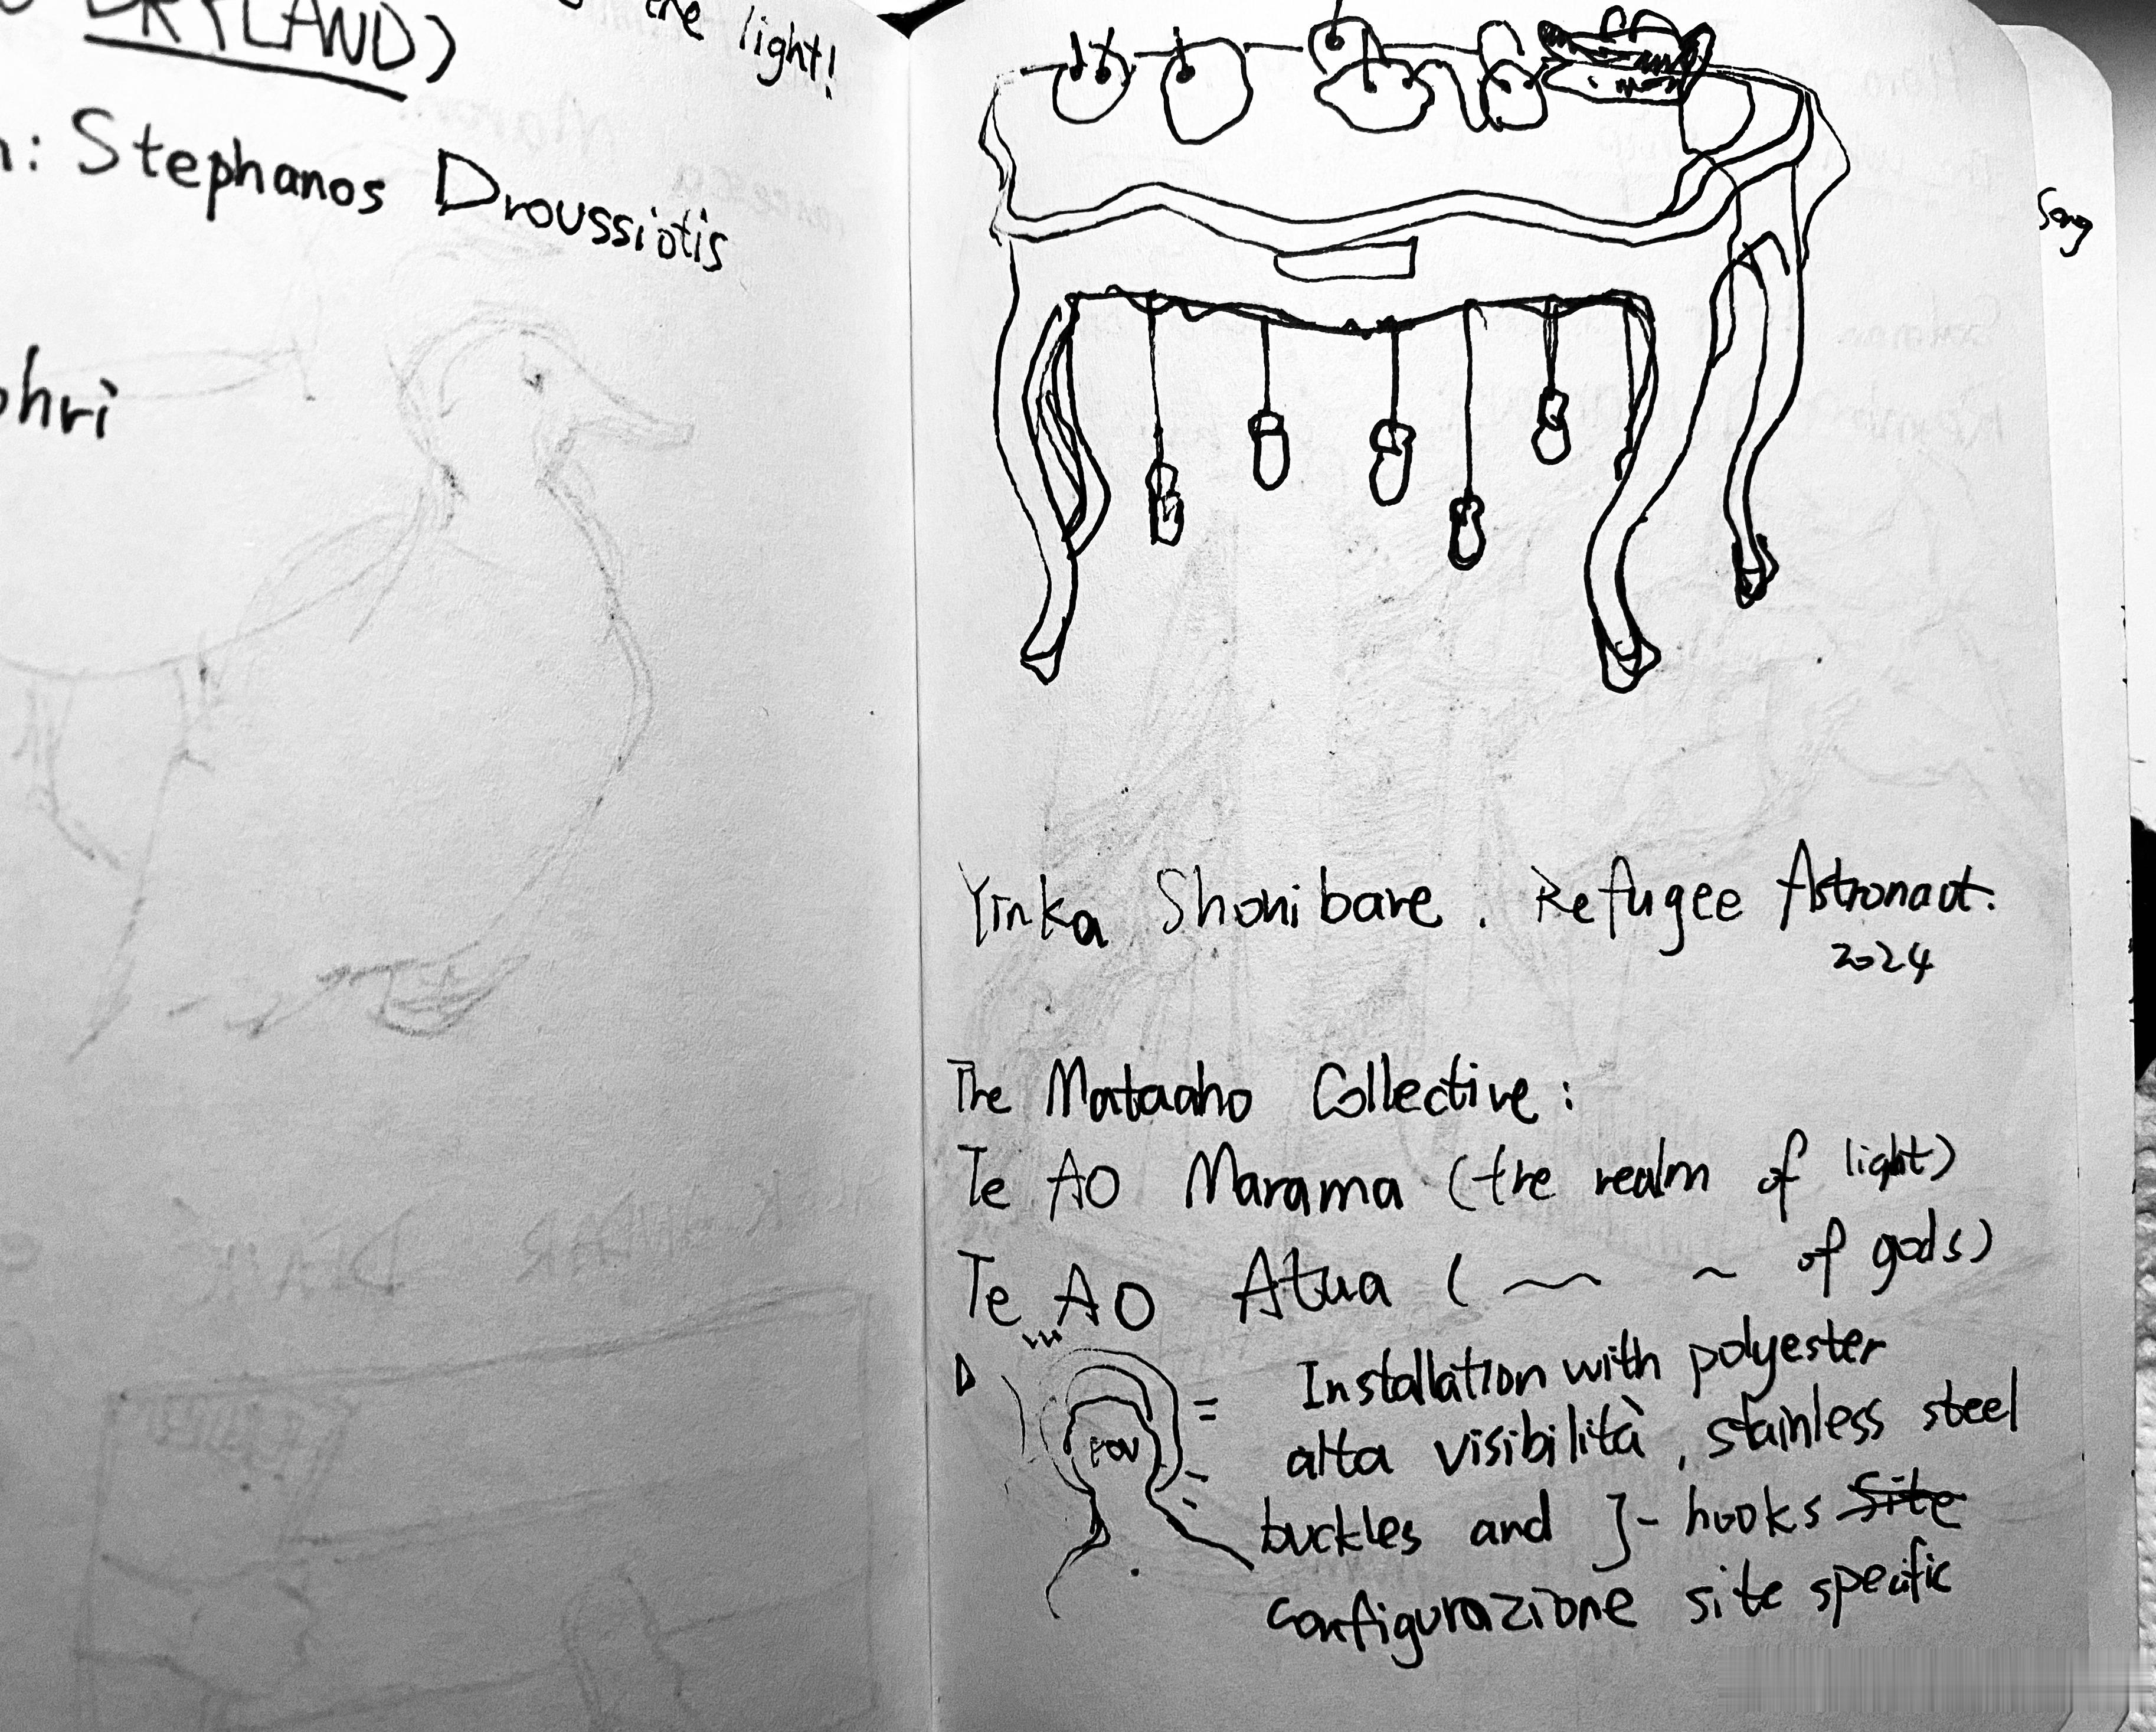 DRYLAND)
the light!
: Stephanos Droussiotis
phri
Song
Yinka Shonibare. Refugee Astronaut.
2024
The Mataaho Collective:
Te AO Marama (the realm of light)
Te AO Atua ( of gods)
POV
Installation with polyester
alta visibilità, stainless steel
buckles and J-hooks site
configurazione site specific